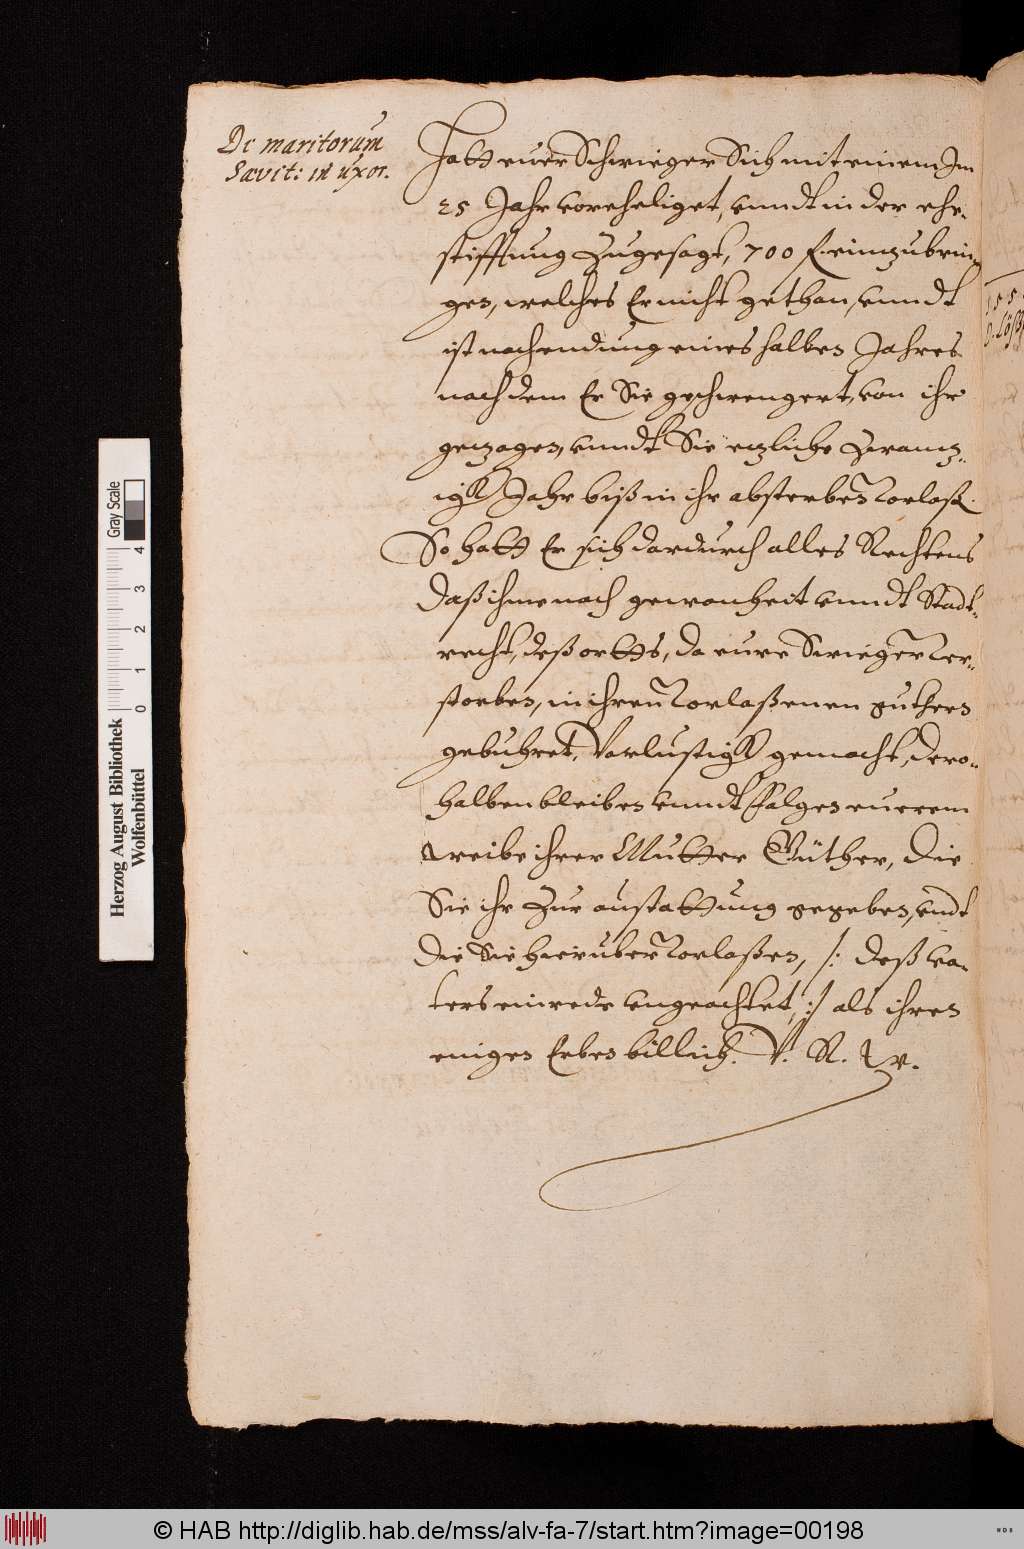 De maritorum
Sævit: in uxor.
Hatt euer Schwieger Sich mit einem Im
25 Jahr voreheliget, vnndt in der ehe-
stifftung Zugesagt, 700 fl. einzubrin-
gen, welches Er nicht gethan, vnndt
ist nach endung eines halben Jahres
nach dem Er Sie geschwengert, von ihr
getzogen, vnndt Sie etzliche Zwantz-
igk Jahr biß in ihr absterben vorlaßen.
So hatt Er sich dardurch alles Rechtens
Daß ihme nach gewonheit vnndt Stadt-
recht, deß orths, da eure Swieger ver-
storben, in ihren vorlaßenen guthern
gebuhret, Vorlustigk gemacht, dero-
halben bleiben vnndt folgen euerem
Weibe ihrer Mutter Güther, die
Sie ihr Zur austattung gegeben, vndt
die Sie hieruber vorlaßen, /: deß va-
ters einrede vngeachtet, :/ als ihren
einigen Erben billich. V. R. W.
Herzog August Bibliothek
Wolfenbüttel
0 1 2 3 4
Gray Scale
© HAB http://diglib.hab.de/mss/alv-fa-7/start.htm?image=00198